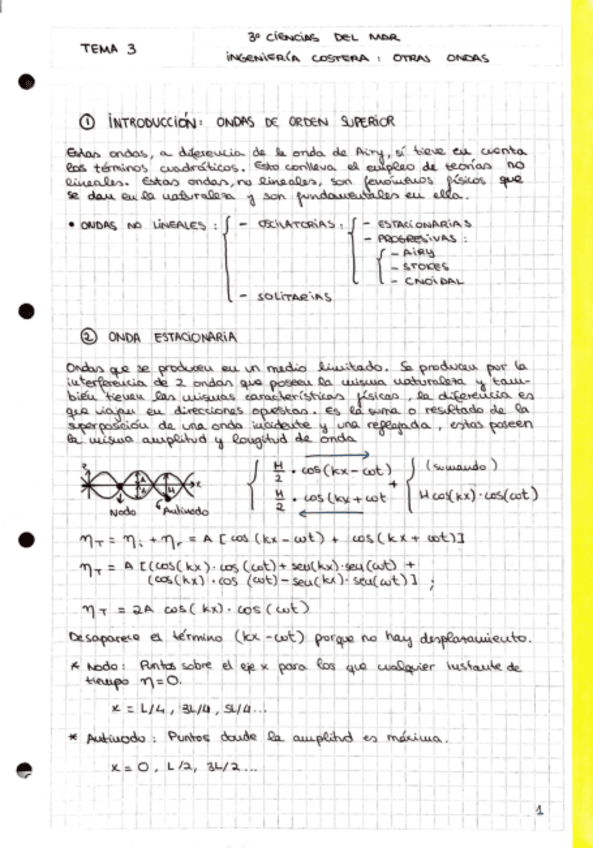 TEMA 3
3º CIENCIAS DEL MAR
INGENIERÍA COSTERA : OTRAS ONDAS
① INTRODUCCIÓN: ONDAS DE ORDEN SUPERIOR
Estas ondas, a diferencia de la onda de Airy, sí tiene en cuenta
los términos cuadráticos. Esto conlleva el empleo de teorías no
lineales. Estas ondas, no lineales, son fenómenos físicos que
se dan en la naturaleza y son fundamentales en ella.
• ONDAS NO LINEALES : { - OSCILATORIAS : { - ESTACIONARIAS
- PROGRESIVAS :
{ - AIRY
- STOKES
- CNOIDAL
- SOLITARIAS
② ONDA ESTACIONARIA
Ondas que se producen en un medio limitado. Se producen por la
interferencia de 2 ondas que poseen la misma naturaleza y tam-
bién tienen las mismas características físicas, la diferencia es
que viajan en direcciones opuestas. Es la suma o resultado de la
superposición de una onda incidente y una reflejada, estas poseen
la misma amplitud y longitud de onda
z
x
A
A
H
Nodo
Antinodo
{ H/2 · cos(kx - ωt)
H/2 · cos(kx + ωt
+
{ (sumando)
H cos(kx) · cos(ωt)
ηT = ηi + ηr = A [cos (kx - ωt) + cos (kx + ωt)]
ηT = A [(cos(kx) · cos (ωt) + sen(kx) · sen(ωt) +
(cos(kx) · cos (ωt) - sen(kx) · sen(ωt)] ;
ηT = 2A cos(kx) · cos(ωt)
Desaparece el término (kx - ωt) porque no hay desplazamiento.
* Nodo : Puntos sobre el eje x para los que cualquier instante de
tiempo η = 0.
x = L/4 , 3L/4, 5L/4...
* Antinodo : Puntos donde la amplitud es máxima.
x = 0, L/2, 3L/2...
1